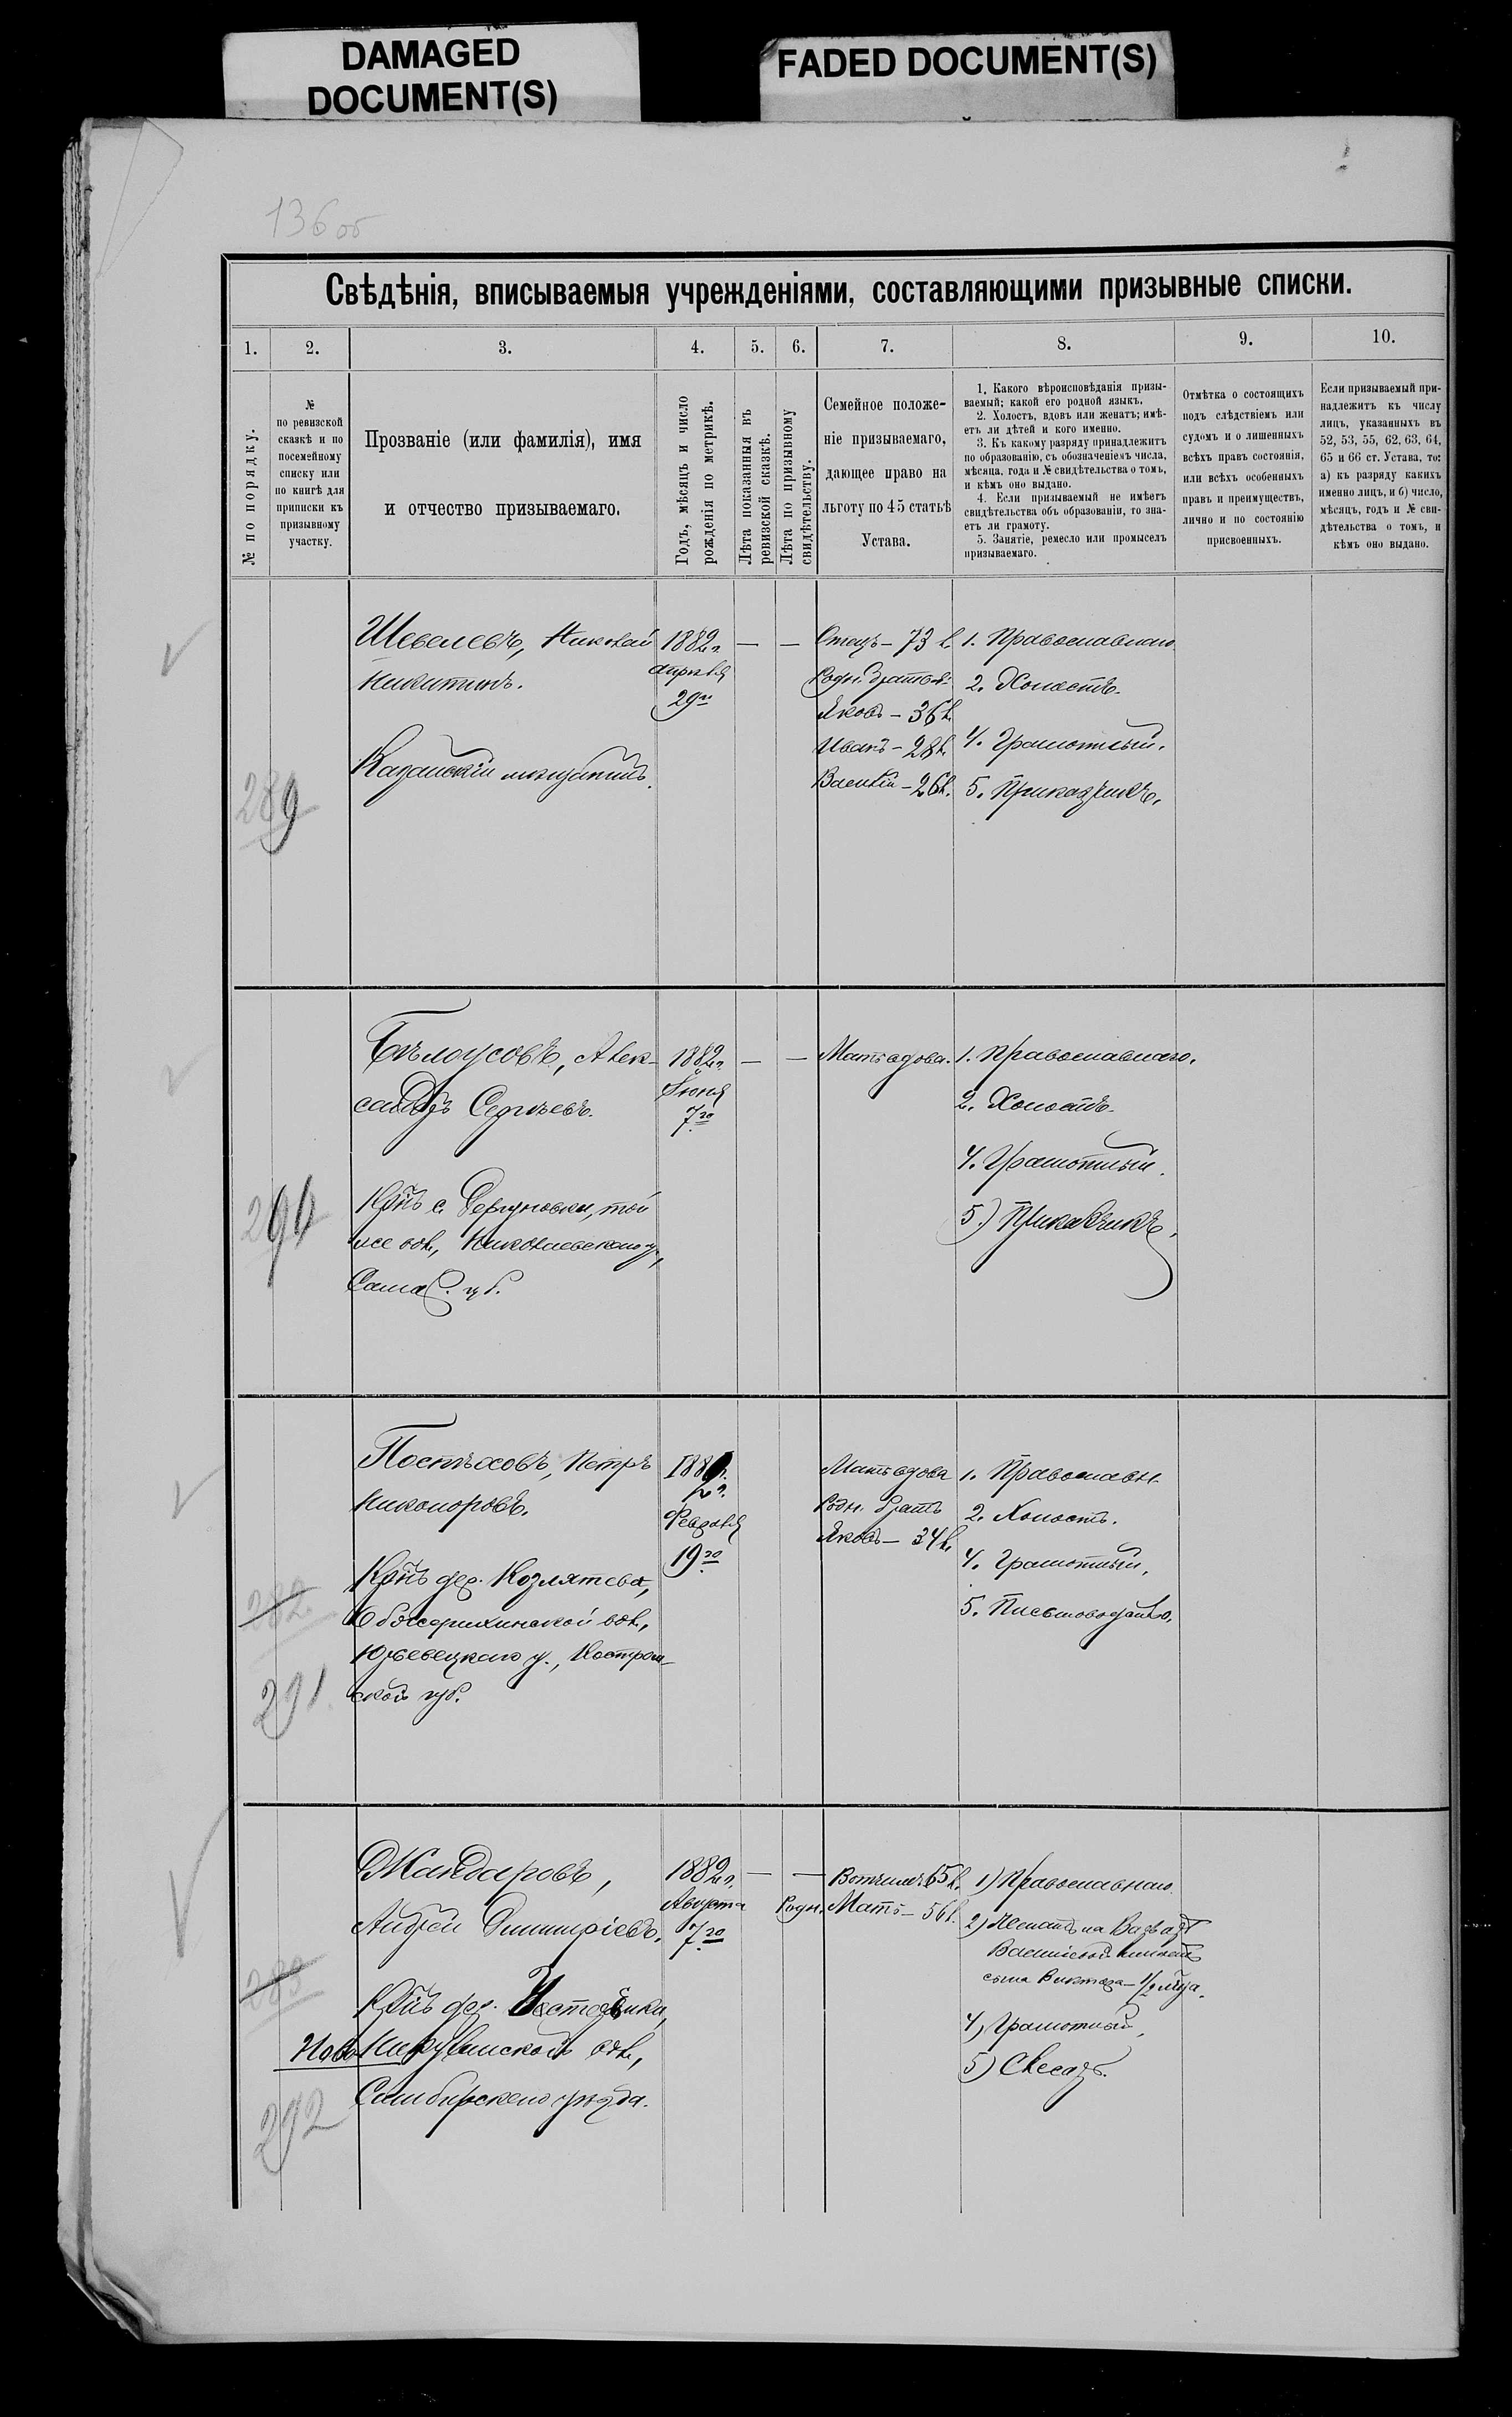 DAMAGED
DOCUMENT(S)
FADED DOCUMENT(S)
136 об
Свѣдѣнія, вписываемыя учрежденіями, составляющими призывные списки.
1.
2.
3.
4.
5.
6.
7.
8.
9.
10.
№ по порядку.
№
по ревизской
сказкѣ и по
посемейному
списку или
по книгѣ для
приписки къ
призывному
участку.
Прозваніе (или фамилія), имя
и отчество призываемаго.
Годъ, мѣсяцъ и число
рожденія по метрикѣ.
Лѣта показанныя въ
ревизской сказкѣ.
Лѣта по призывному
свидѣтельству.
Семейное положе-
ніе призываемаго,
дающее право на
льготу по 45 статьѣ
Устава.
1. Какого вѣроисповѣданія призы-
ваемый; какой его родной языкъ.
2. Холостъ, вдовъ или женатъ; имѣ-
етъ ли дѣтей и кого именно.
3. Къ какому разряду принадлежитъ
по образованію, съ обозначеніемъ числа,
мѣсяца, года и № свидѣтельства о томъ,
и кѣмъ оно выдано.
4. Если призываемый не имѣетъ
свидѣтельства объ образованіи, то зна-
етъ ли грамоту.
5. Занятіе, ремесло или промыселъ
призываемаго.
Отмѣтка о состоящихъ
подъ слѣдствіемъ или
судомъ и о лишенныхъ
всѣхъ правъ состоянія,
или всѣхъ особенныхъ
правъ и преимуществъ,
лично и по состоянію
присвоенныхъ.
Если призываемый при-
надлежитъ къ числу
лицъ, указанныхъ въ
52, 53, 55, 62, 63, 64,
65 и 66 ст. Устава, то:
а) къ разряду какихъ
именно лицъ, и б) число,
мѣсяцъ, годъ и № сви-
дѣтельства о томъ, и
кѣмъ оно выдано.
289
Шевелевъ, Николай
Никитинъ.
Казанскій мѣщанинъ.
1882 г.
апрѣля
29го
Отецъ – 73 л.
Родн. братья:
Яковъ – 36 л.
Иванъ – 28 л.
Василій – 26 л.
1. Православнаго
2. Холостъ.
4. Грамотный.
5. Приказчикъ.
290
Бѣлоусовъ, Алек-
сандръ Сергѣевъ.
Крнъ с. Дергуновки, той
же вол., Николаевскаго у.,
Самар. губ.
1882 г.
Іюня
7го
Мать вдова.
1. Православнаго.
2. Холостъ.
4. Грамотный.
5.) Приказчикъ.
282
291
Постѣховъ, Петръ
Никоноровъ.
Крнъ дер. Козлятева,
вол.,
Юрьевецкаго у., Костром-
ской губ.
188
2 г.
Февраля
19го
Мать вдова
Родн. братъ
Яковъ – 34 л.
1. Православн.
2. Холостъ.
4. Грамотный.
5. Письмоводитель.
283
292
Жандаровъ,
Андрей Димитріевъ.
Крнъ дер.
Ново Никулинской вол.,
Симбирскаго уѣзда.
1882 г.
Августа
7го
Вотчимъ 65 л.
Родн. Мать – 56 л.
1) Православнаго
2) Женатъ на
сына Виктора – 1/2 года.
4) Грамотный,
5) Слесарь.